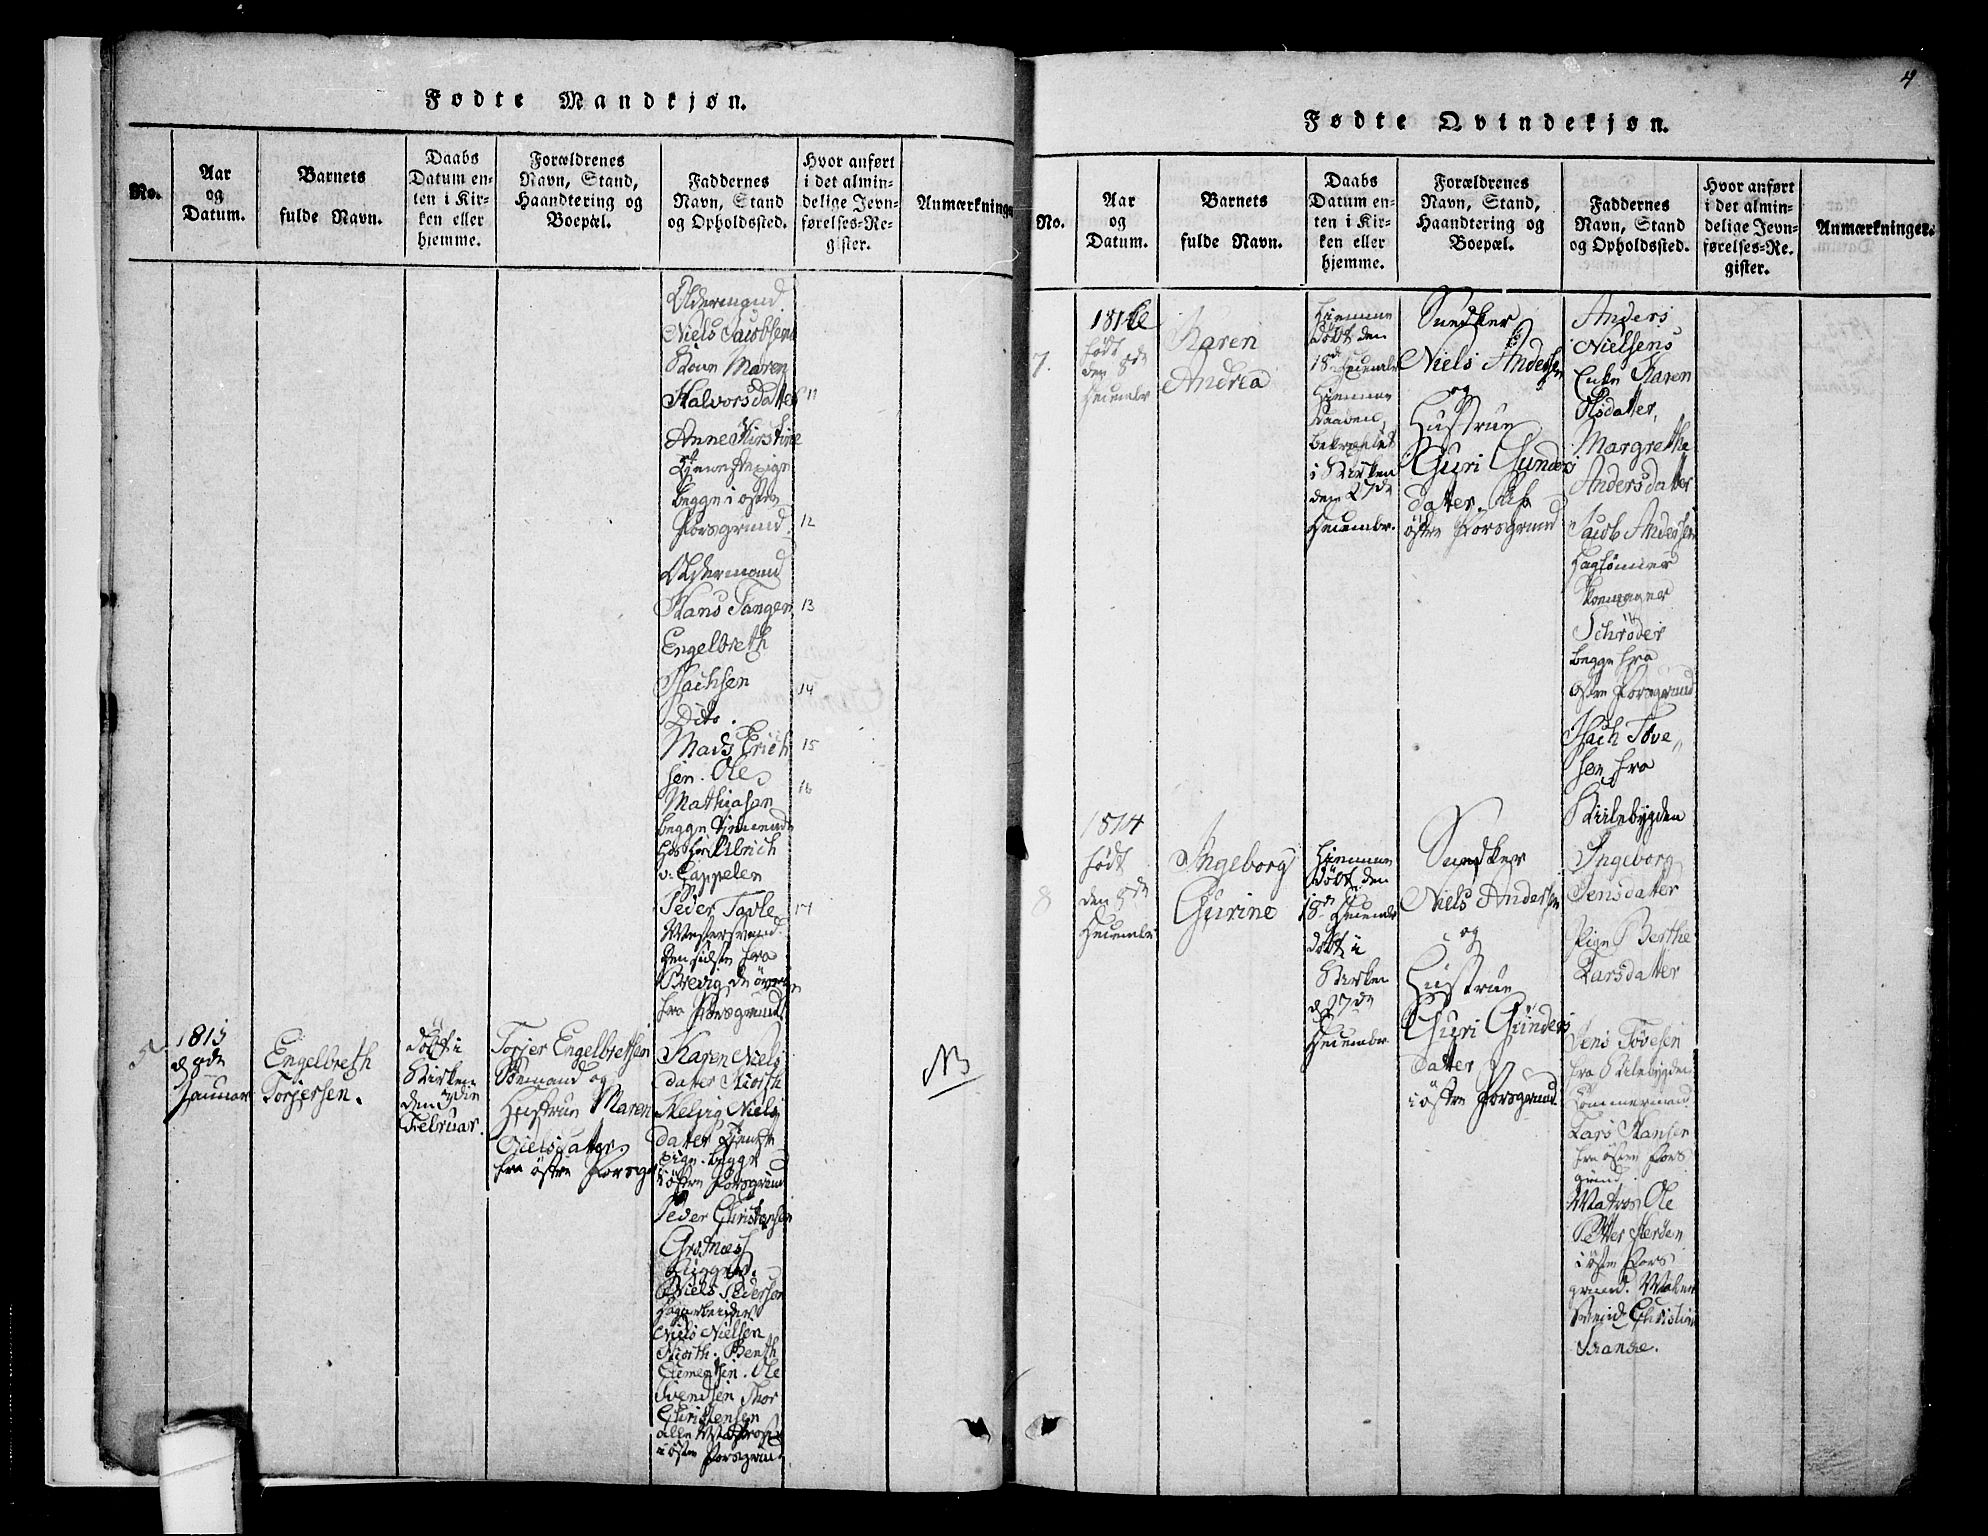 Fødte Mandkjøn.
No.
Aar
og
Datum.
Barnets
fulde Navn.
Daabs
Datum en-
ten i Kir-
ken eller
hjemme.
Forældrenes
Navn, Stand,
Haandtering og
Boepæl.
Faddernes
Navn, Stand
og Opholdssted.
Hvor anført
i det almin-
delige Jevn-
førelses-Re-
gister.
Anmærkninger
Oldermand
Niels Jacobsens
Kone Maren
Halvorsdatter 11
Anne Kirstine
begge i østre
Porsgrund. 12
Oldermand
Hans Tangen 13
Engelbreth
Isachsen 14
Dito.
Mads Erich 15
sen. Ole
Mathiasen 16
begge
hos Hr Ulrich
v: Cappelen
Peder Tavle 17
den sidste fra
Brevig de øvrige
fra Porsgrund
5
1815
d 8de
Januar
Engelbreth
Torjersen.
Døbt i
Kirken
den
Februar.
Torjer Engelbrethsen
Sømand og
Hustrue Maren
Nielsdatter
fra østre Porsgr
Karen Niels
datter Kiorth
Helvig Niels
datter Tjeneste
pige. begge
i østre Porsgrund
Peder Christensen
Grotnæss
Niels Pedersen
Dagarbeider
Niels Nielsen
Kiorth. Benth
Clementsen. Ole
Svendsen Thor
Christensen
alle Matroser
i østre Porsgrund
NB
4
Fødte Qvindekjøn.
No.
Aar
og
Datum.
Barnets
fulde Navn.
Daabs
Datum en-
ten i Kir-
ken eller
hjemme.
Forældrenes
Navn, Stand,
Haandtering og
Boepæl.
Faddernes
Navn, Stand
og Opholdssted.
Hvor anført
i det almin-
delige Jevn-
førelses-Re-
gister.
Anmærkninger.
7.
født
den 8de
Decembr
Karen
Andrea
Hjemme
døbt den
18de Decembr
Hjemme
Daaben
bekræftet
i Kirken
den 27de
Decembr.
Snedker
Niels Andersen
og
Hustrue
Guri Gunders
datter
østre Porsgrund
Anders
Nielsens
Enke Karen
Olsdatter,
Margrethe
Andersdatter
Jacob Andersen
Schrøder
begge fra
østre Porsgrund
Isach Tove
sen fra
Kilebygden
8
1814
født
den 8de
Decembr
Ingeborg
Gurine
Hjemme
døbt den
18de Decembr
døbt i
Kirken
d 27de
Decembr
Snedker
Niels Andersen
og
Hustrue
Guri Gunders
datter
i østre Porsgrund
Ingeborg
Jensdatter
Pige Berthe
Larsdatter
Jens Tovesen
fra Kilebygden
Tømmermand
Lars Hansen
fra østre Pors
grund.
Matros Ole
Petter
i østre Pors
grund.
Svend Christian